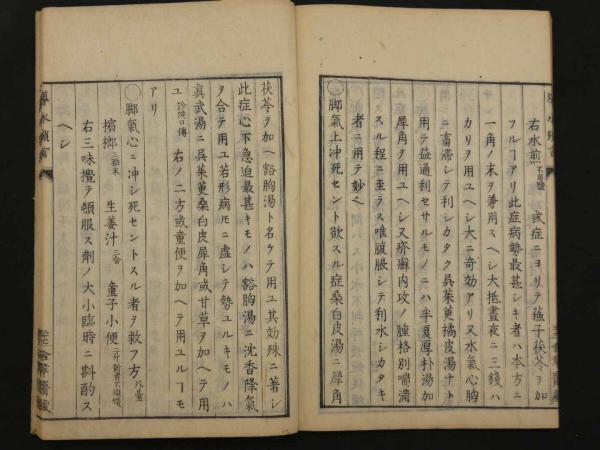 右水煎 不用鹽 或症ニヨリテ蘓子茯苓ヲ加
フルーアリ此症病勢最甚シキ者ハ本方ニ
一角ノ末ヲ兼用スヘシ大抵晝夜ニ三錢ハ
カリヲ用ユヘシ大ニ奇効アリ又水氣心胸
ニ畜滞シテ利シカタク呉茱萸橘皮湯ナト
用テ益通利セサルモノニハ半夏厚朴湯加
犀角ヲ用ユヘシ又疥癬内攻ノ腫格別喘滿
スル程ニ至ラス唯腹脹シテ利水シカタキ
者ニ用テ妙ヘ
○脚氣上冲死セント欲スル症桑白皮湯ニ犀角
茯苓ヲ加ヘ豁胸湯ト名ケテ用ユ其効殊ニ著シ
此症心下急迫最甚キモノハ豁胸湯ニ沈香降氣
ヲ合テ用ユ若形病厇ニ虚シテ勢ユルキモノハ
眞武湯ニ呉茱萸桑白皮犀角或甘草ヲ加ヘテ用
ユ 診候口傳 右ノ二方或童便ヲ加ヘテ用ユルーモ
アリ
○脚氣心ニ冲シ死セントスル者ヲ救フ方 外臺
檳榔 三顆末 生姜汁 三合 童子小便 二升新者不須煖
右三味攪テ頓服ス劑ノ大小臨時ニ斟酌ス
ヘシ
導水瑣言